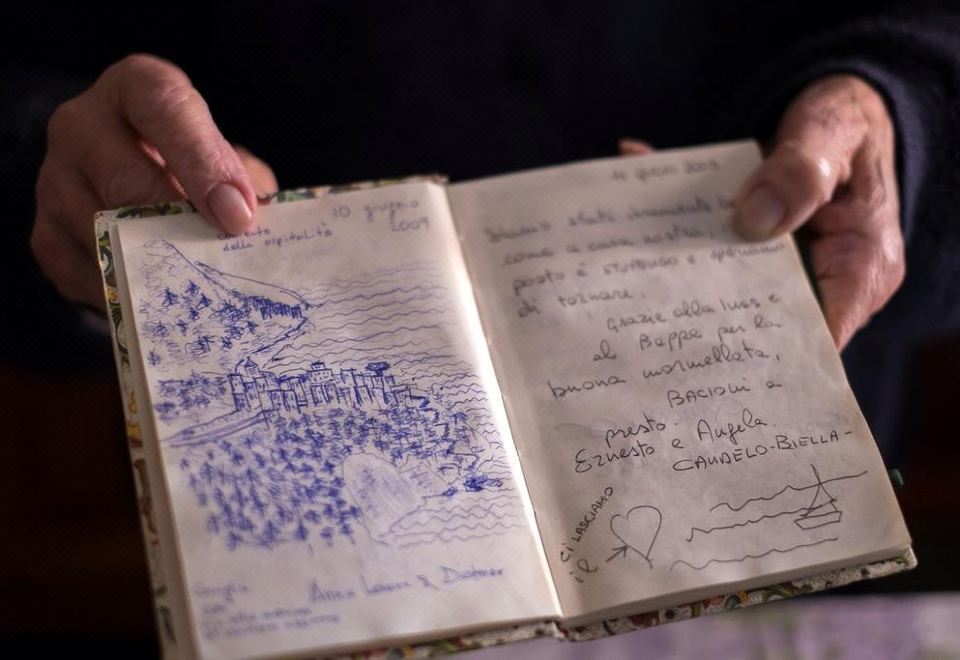 10 giugno
2009
della ospitalità
Anna Laura & Dietmar
giugno 2009
Siamo stati veramente
come a casa nostra
posto è STUPENDO e speriamo
di tornare.
Grazie alla
al Beppe per la
buona marmellata,
BACIONI a
presto.
Ernesto e Angela
CANDELO-BIELLA-
CI LASCIAMO
il